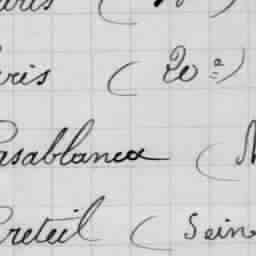 aris (
ris (20e)
asablanca (M
reteil (Sein